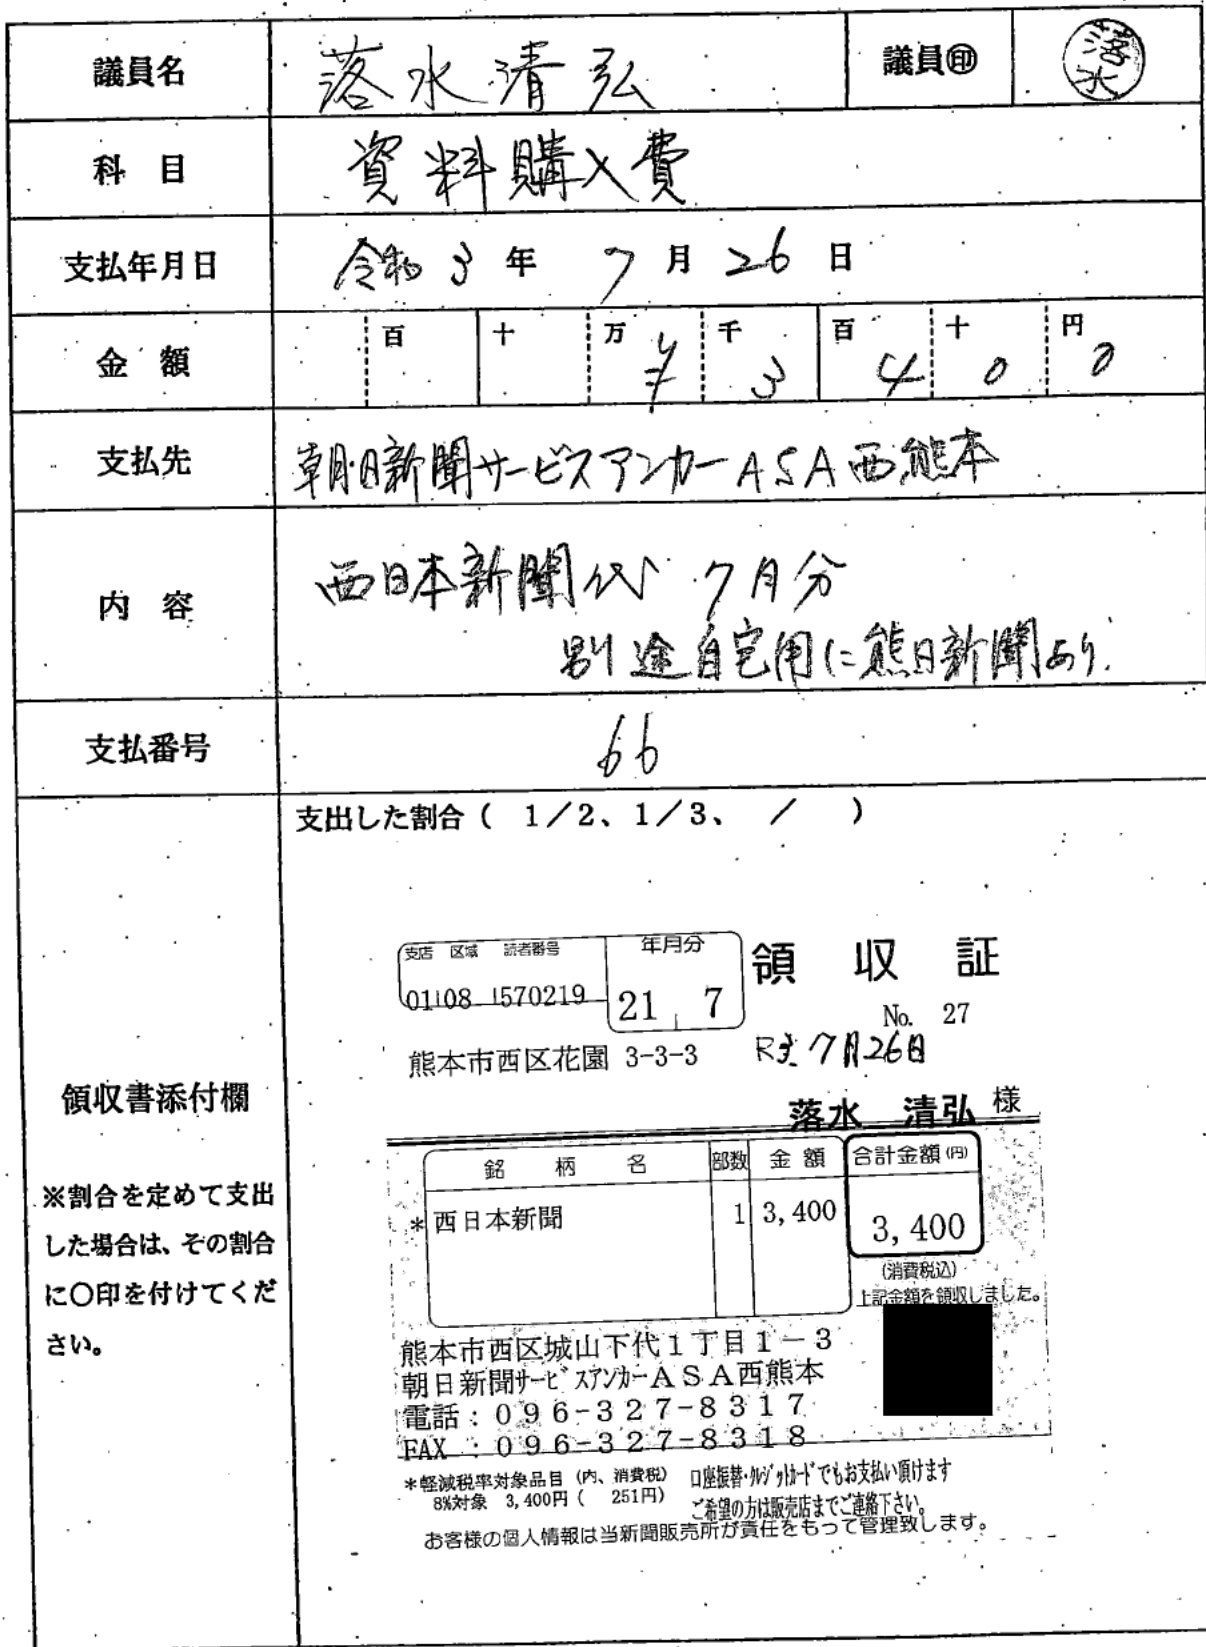 議員名 落水清弘 議員㊞ 落水
科 目 資料購入費
支払年月日 令和 3 年 7 月 26 日
金 額 百 十 万 ¥ 千 3 百 4 十 0 円 0
支払先 朝日新聞サービスアンカーASA西熊本
内 容 西日本新聞代 7月分
別途自宅用に熊日新聞あり.
支払番号 66
支出した割合 ( 1/2、1/3、 / )
領収書添付欄
※割合を定めて支出
した場合は、その割合
に〇印を付けてくだ
さい。
支店 区域 読者番号 年月分
01 08 570219 21 7
領 収 証
No. 27
熊本市西区花園 3-3-3
R3. 7月26日
落水 清弘 様
銘 柄 名 部数 金 額 合計金額(円)
*西日本新聞 1 3,400 3,400
(消費税込)
上記金額を領収しました。
熊本市西区城山下代1丁目1-3
朝日新聞サービスアンカーASA西熊本
電話:096-327-8317
FAX :096-327-8318
*軽減税率対象品目(内、消費税)
8%対象 3,400円( 251円)
口座振替・クレジットカードでもお支払い頂けます
ご希望の方は販売店までご連絡下さい。
お客様の個人情報は当新聞販売所が責任をもって管理致します。